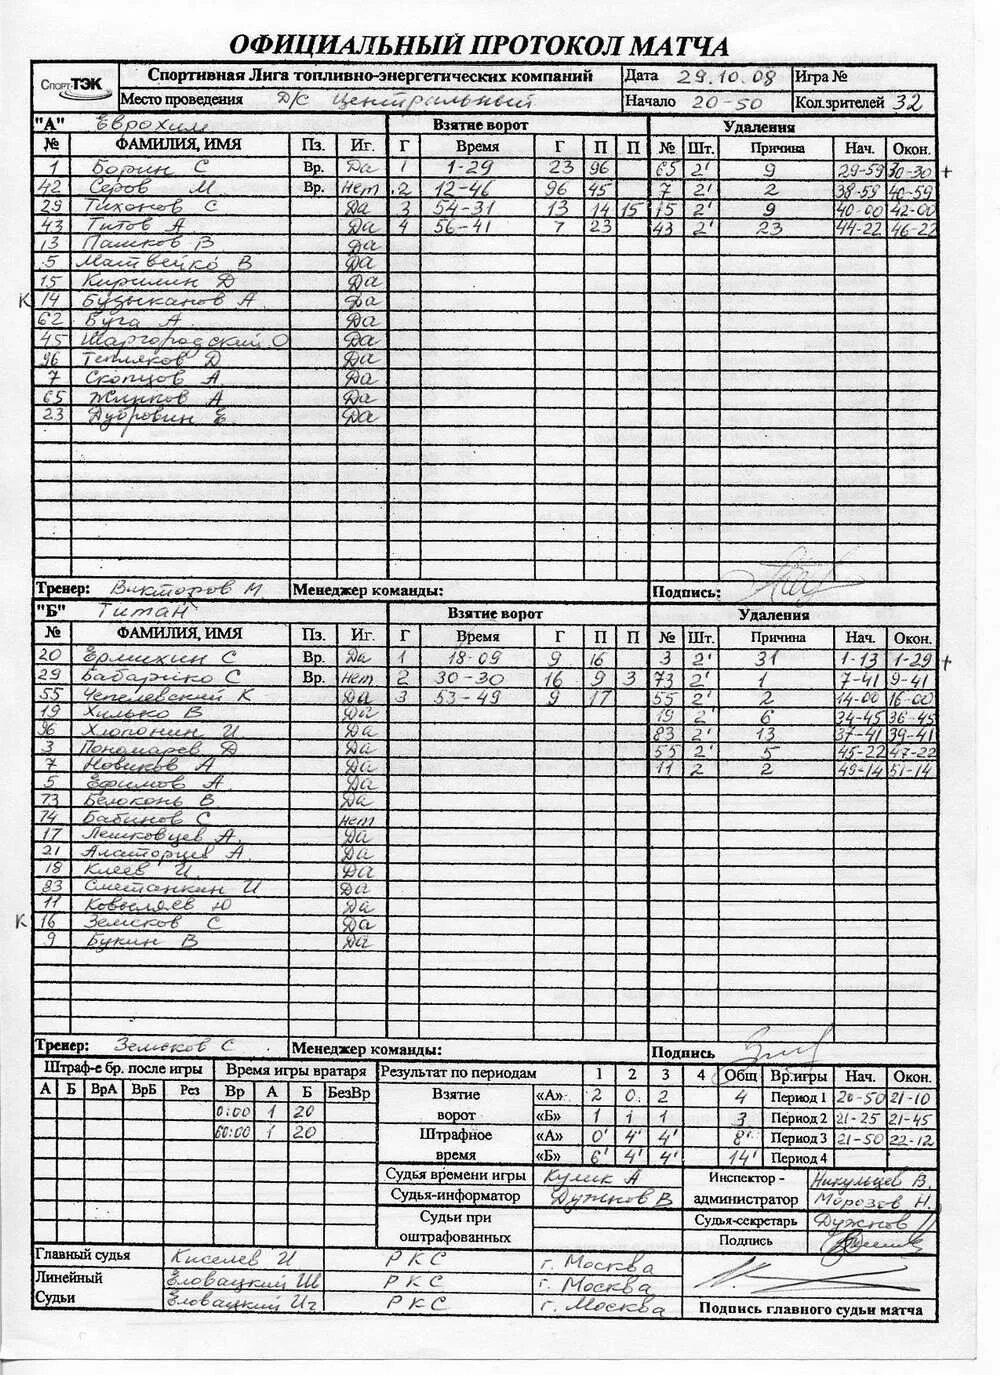 ОФИЦИАЛЬНЫЙ ПРОТОКОЛ МАТЧА
Спорт ТЭК Спортивная Лига топливно-энергетических компаний Дата 29.10.08 Игра №
Место проведения Д/С Центральный Начало 20-50 Кол.зрителей 32
"А" Еврохим Взятие ворот Удаления
№ ФАМИЛИЯ, ИМЯ Пз. Иг. Г Время Г П П № Шт. Причина Нач. Окон.
1 Борин С Вр. Да 1 1-29 23 96 65 2' 9 29-59 30-30 +
42 Серов М Вр. Нет 2 12-46 96 45 7 2' 2 38-59 40-59
29 Тихонов С Да 3 54-31 13 14 15 15 2' 9 40-00 42-00
43 Титов А Да 4 56-41 7 23 43 2' 23 44-22 46-22
13 Пашков В Да
5 Матвейко В Да
15 Киришин Д Да
К 14 Бузыканов А Да
62 Буга А Да
45 Шаргородский О Да
96 Тепляков Д Да
7 Скопцов А Да
65 Жилков А Да
23 Дубровин Е Да
Тренер: Викторов М Менеджер команды: Подпись:
"Б" Титан Взятие ворот Удаления
№ ФАМИЛИЯ, ИМЯ Пз. Иг. Г Время Г П П № Шт. Причина Нач. Окон.
20 Ермихин С Вр. Да 1 18-09 9 16 3 2' 31 1-13 1-29 +
29 Бабарико С Вр. Нет 2 30-30 16 9 3 73 2' 1 7-41 9-41
55 Чепелевский К Да 3 53-49 9 17 55 2' 2 14-00 16-00
19 Хилько В Да 19 2' 6 34-45 36-45
96 Хлопонин И Да 83 2' 13 37-41 39-41
3 Пономарев Д Да 55 2' 5 45-22 47-22
7 Новиков А Да 11 2 2 49-14 51-14
5 Ефимов А Да
73 Белоконь В Да
74 Бабинов С Нет
17 Лешковцев А. Да
21 Алаторцев А. Да
18 Клеев И. Да
83 Сметанкин И Да
11 Ковыляев Ю Да
К 16 Земсков С Да
9 Букин В Да
Тренер: Земсков С. Менеджер команды: Подпись
Штраф-е бр. после игры Время игры вратаря Результат по периодам 1 2 3 4 Общ Вр.игры Нач. Окон.
А Б ВрА ВрБ Рез Вр А Б БезВр Взятие «А» 2 0 2 4 Период 1 20-50 21-10
0:00 1 20 ворот «Б» 1 1 1 3 Период 2 21-25 21-45
60:00 1 20 Штрафное «А» 0' 4' 4' 8' Период 3 21-50 22-12
время «Б» 6' 4' 4' 14' Период 4
Судья времени игры Кулик А Инспектор - Никульцев В.
Судья-информатор Дужнов В администратор Морозов Н.
Судьи при Судья-секретарь Дужнов
оштрафованных Подпись
Главный судья Киселев И РКС г. Москва
Линейный Еловацкий Ш РКС г. Москва
Судьи Еловацкий Иг РКС г. Москва Подпись главного судьи матча